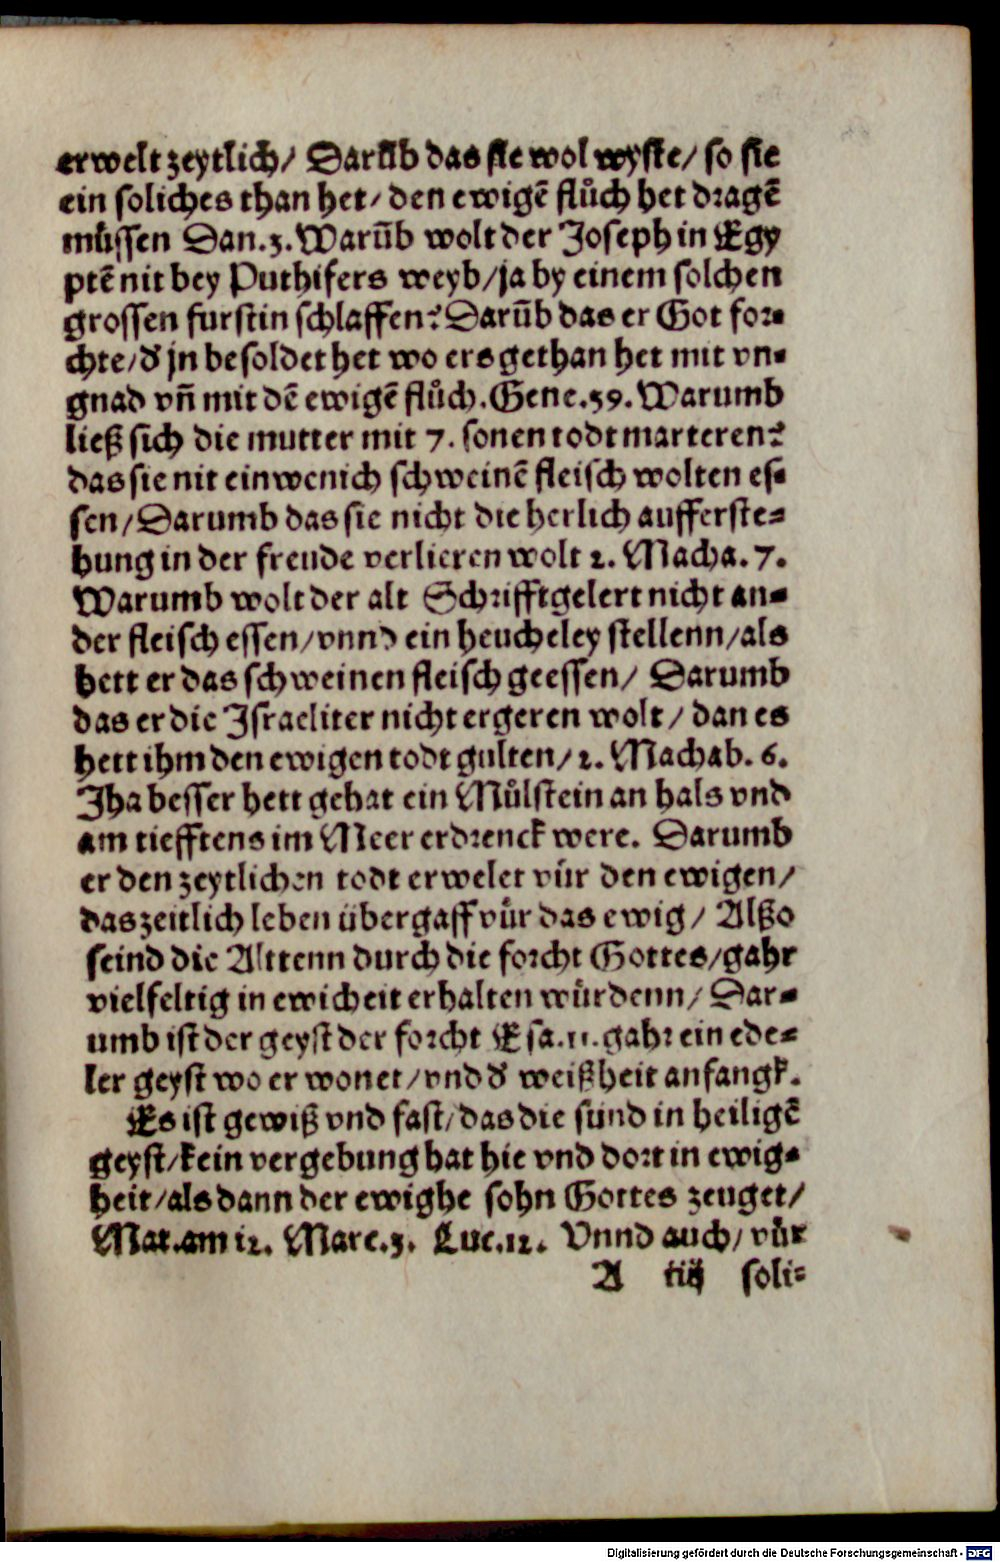 erwelt zeytlich/ Darūb das sie wol wyste/ so sie
ein soliches than het/ den ewigē flůch het dragē
můssen Dan.3. Warūb wolt der Joseph in Egy
ptē nit bey Puthifers weyb/ ja by einem solchen
grossen furstin schlaffen? Darūb das er Got for-
chte/ d̕ jn besoldet het wo ers gethan het mit vn-
gnad vn̄ mit dē ewigē flůch. Gene.39. Warumb
ließ sich die mutter mit 7. sonen todt marteren?
das sie nit ein wenich schweinē fleisch wolten es-
sen/ Darumb das sie nicht die herlich aufferste-
hung in der freude verlieren wolt 2. Macha. 7.
Warumb wolt der alt Schrifftgelert nicht an-
der fleisch essen/ vnnd ein heucheley stellenn/ als
hett er das schweinen fleisch geessen/ Darumb
das er die Israeliter nicht ergeren wolt/ dan es
hett ihm den ewigen todt gulten/ 2. Machab. 6.
Jha besser hett gehat ein Můlstein an hals vnd
am tiefftens im Meer erdrenck were. Darumb
er den zeytlichen todt erwelet vür den ewigen/
das zeitlich leben übergaff vůr das ewig/ Alßo
seind die Alttenn durch die forcht Gottes/ gahr
vielfeltig in ewicheit erhalten würdenn/ Dar-
umb ist der geyst der forcht Esa.11. gahr ein ede-
ler geyst wo er wonet/ vnd d̕ weißheit anfangk.
Es ist gewiß vnd fast/ das die sünd in heiligē
geyst/ kein vergebung hat hie vnd dort in ewig-
heit/ als dann der ewighe sohn Gottes zeuget/
Mat.am 12. Marc.3. Luc.12. Vnnd auch/ vůr
A iiij soli-
Digitalisierung gefördert durch die Deutsche Forschungsgemeinschaft - DFG